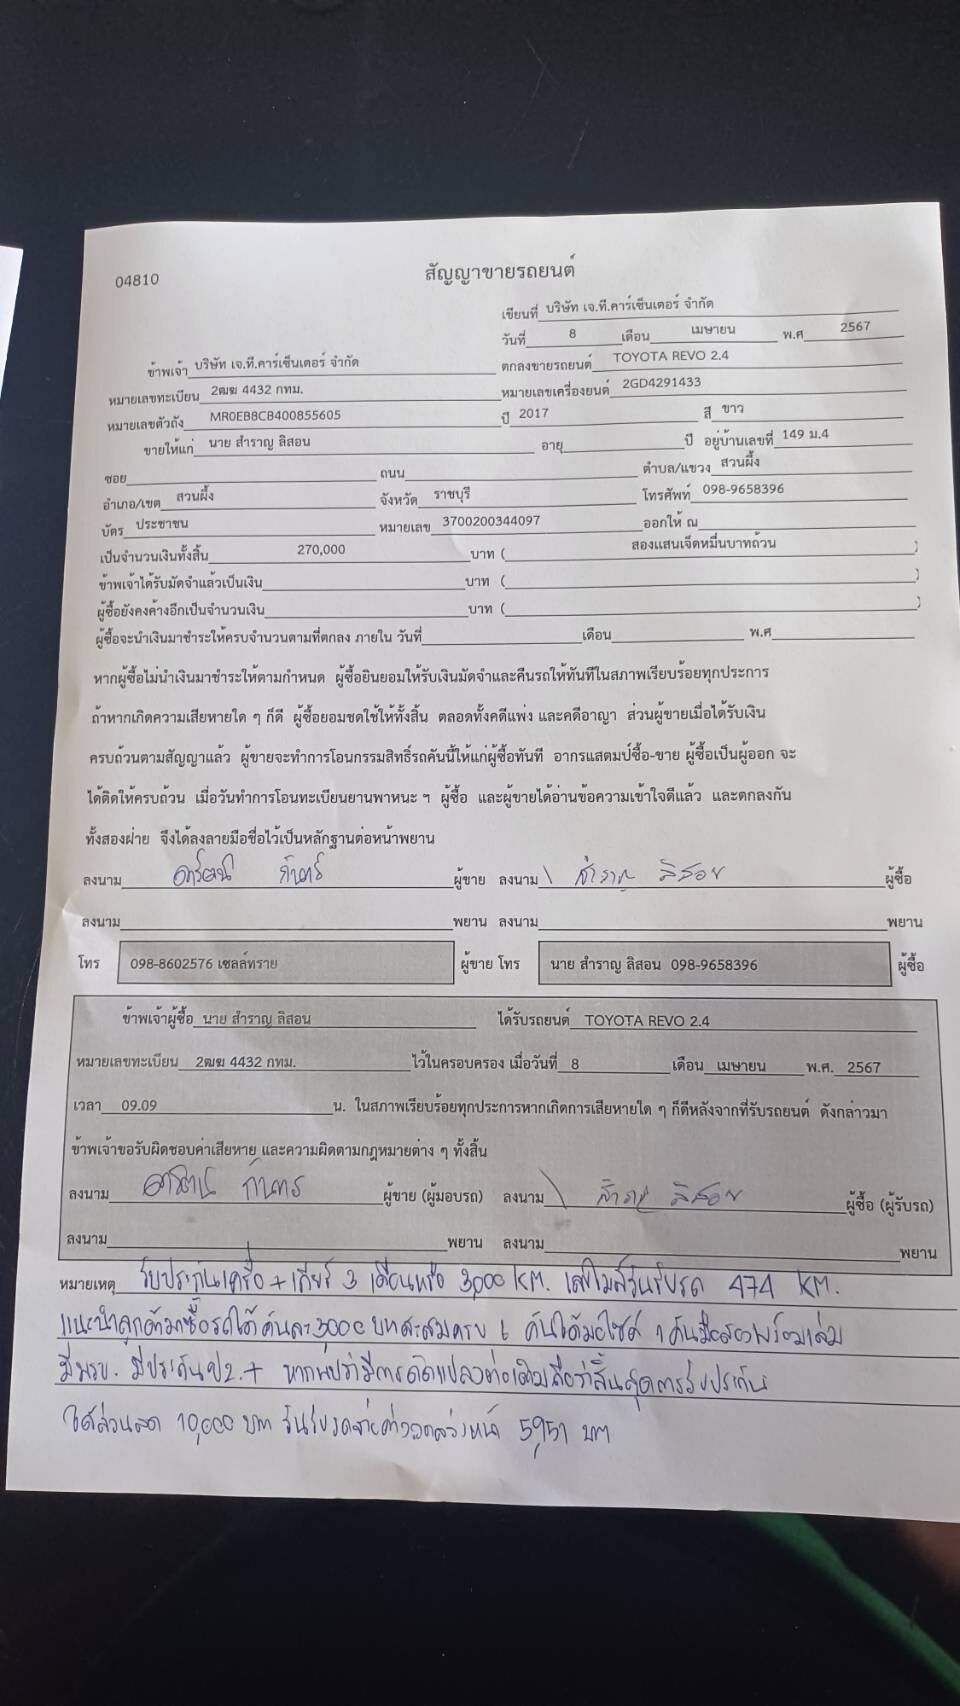 04810
สัญญาขายรถยนต์
เขียนที่ บริษัท เจ.ที.คาร์เซ็นเตอร์ จำกัด
วันที่ 8 เดือน เมษายน พ.ศ 2567
ข้าพเจ้า บริษัท เจ.ที.คาร์เซ็นเตอร์ จำกัด ตกลงขายรถยนต์ TOYOTA REVO 2.4
หมายเลขทะเบียน 2ฒฆ 4432 กทม. หมายเลขเครื่องยนต์ 2GD4291433
หมายเลขตัวถัง MR0EB8CB400855605 ปี 2017 สี ขาว
ขายให้แก่ นาย สำราญ ลิสอน อายุ ปี อยู่บ้านเลขที่ 149 ม.4
ซอย ถนน ตำบล/แขวง สวนผึ้ง
อำเภอ/เขต สวนผึ้ง จังหวัด ราชบุรี โทรศัพท์ 098-9658396
บัตร ประชาชน หมายเลข 3700200344097 ออกให้ ณ
เป็นจำนวนเงินทั้งสิ้น 270,000 บาท ( สองแสนเจ็ดหมื่นบาทถ้วน )
ข้าพเจ้าได้รับมัดจำแล้วเป็นเงิน บาท ( )
ผู้ซื้อยังคงค้างอีกเป็นจำนวนเงิน บาท ( )
ผู้ซื้อจะนำเงินมาชำระให้ครบจำนวนตามที่ตกลง ภายใน วันที่ เดือน พ.ศ
หากผู้ซื้อไม่นำเงินมาชำระให้ตามกำหนด ผู้ซื้อยินยอมให้รับเงินมัดจำและคืนรถให้ทันทีในสภาพเรียบร้อยทุกประการ
ถ้าหากเกิดความเสียหายใด ๆ ก็ดี ผู้ซื้อยอมชดใช้ให้ทั้งสิ้น ตลอดทั้งคดีแพ่ง และคดีอาญา ส่วนผู้ขายเมื่อได้รับเงิน
ครบถ้วนตามสัญญาแล้ว ผู้ขายจะทำการโอนกรรมสิทธิ์รถคันนี้ให้แก่ผู้ซื้อทันที อากรแสตมป์ซื้อ-ขาย ผู้ซื้อเป็นผู้ออก จะ
ได้ติดให้ครบถ้วน เมื่อวันทำการโอนทะเบียนยานพาหนะ ฯ ผู้ซื้อ และผู้ขายได้อ่านข้อความเข้าใจดีแล้ว และตกลงกัน
ทั้งสองฝ่าย จึงได้ลงลายมือชื่อไว้เป็นหลักฐานต่อหน้าพยาน
ลงนาม ผู้ขาย ลงนาม สำราญ ลิสอน ผู้ซื้อ
ลงนาม พยาน ลงนาม พยาน
โทร 098-8602576 เซลล์ทราย ผู้ขาย โทร นาย สำราญ ลิสอน 098-9658396 ผู้ซื้อ
ข้าพเจ้าผู้ซื้อ นาย สำราญ ลิสอน ได้รับรถยนต์ TOYOTA REVO 2.4
หมายเลขทะเบียน 2ฒฆ 4432 กทม. ไว้ในครอบครอง เมื่อวันที่ 8 เดือน เมษายน พ.ศ. 2567
เวลา 09.09 น. ในสภาพเรียบร้อยทุกประการหากเกิดการเสียหายใด ๆ ก็ดีหลังจากที่รับรถยนต์ ดังกล่าวมา
ข้าพเจ้าขอรับผิดชอบค่าเสียหาย และความผิดตามกฎหมายต่าง ๆ ทั้งสิ้น
ลงนาม ผู้ขาย (ผู้มอบรถ) ลงนาม สำราญ ลิสอน ผู้ซื้อ (ผู้รับรถ)
ลงนาม พยาน ลงนาม พยาน
หมายเหตุ รับประกันเครื่อง + เกียร์ 3 เดือนหรือ 3,000 KM. เลขไมล์วันรับรถ 474 KM.
แนะนำลูกค้ามาซื้อรถได้คันละ 3,000 บาทสะสมครบ 6 คันได้มอไซค์ 1 คันมือสองพร้อมเล่ม
มีพรบ. มีประกันป2.+ หากพบว่ามีการดัดแปลงต่อเติมถือว่าสิ้นสุดการรับประกัน
ได้ส่วนลด 10,000 บาท วันรับรถจ่ายค่างวดล่วงหน้า 5,951 บาท